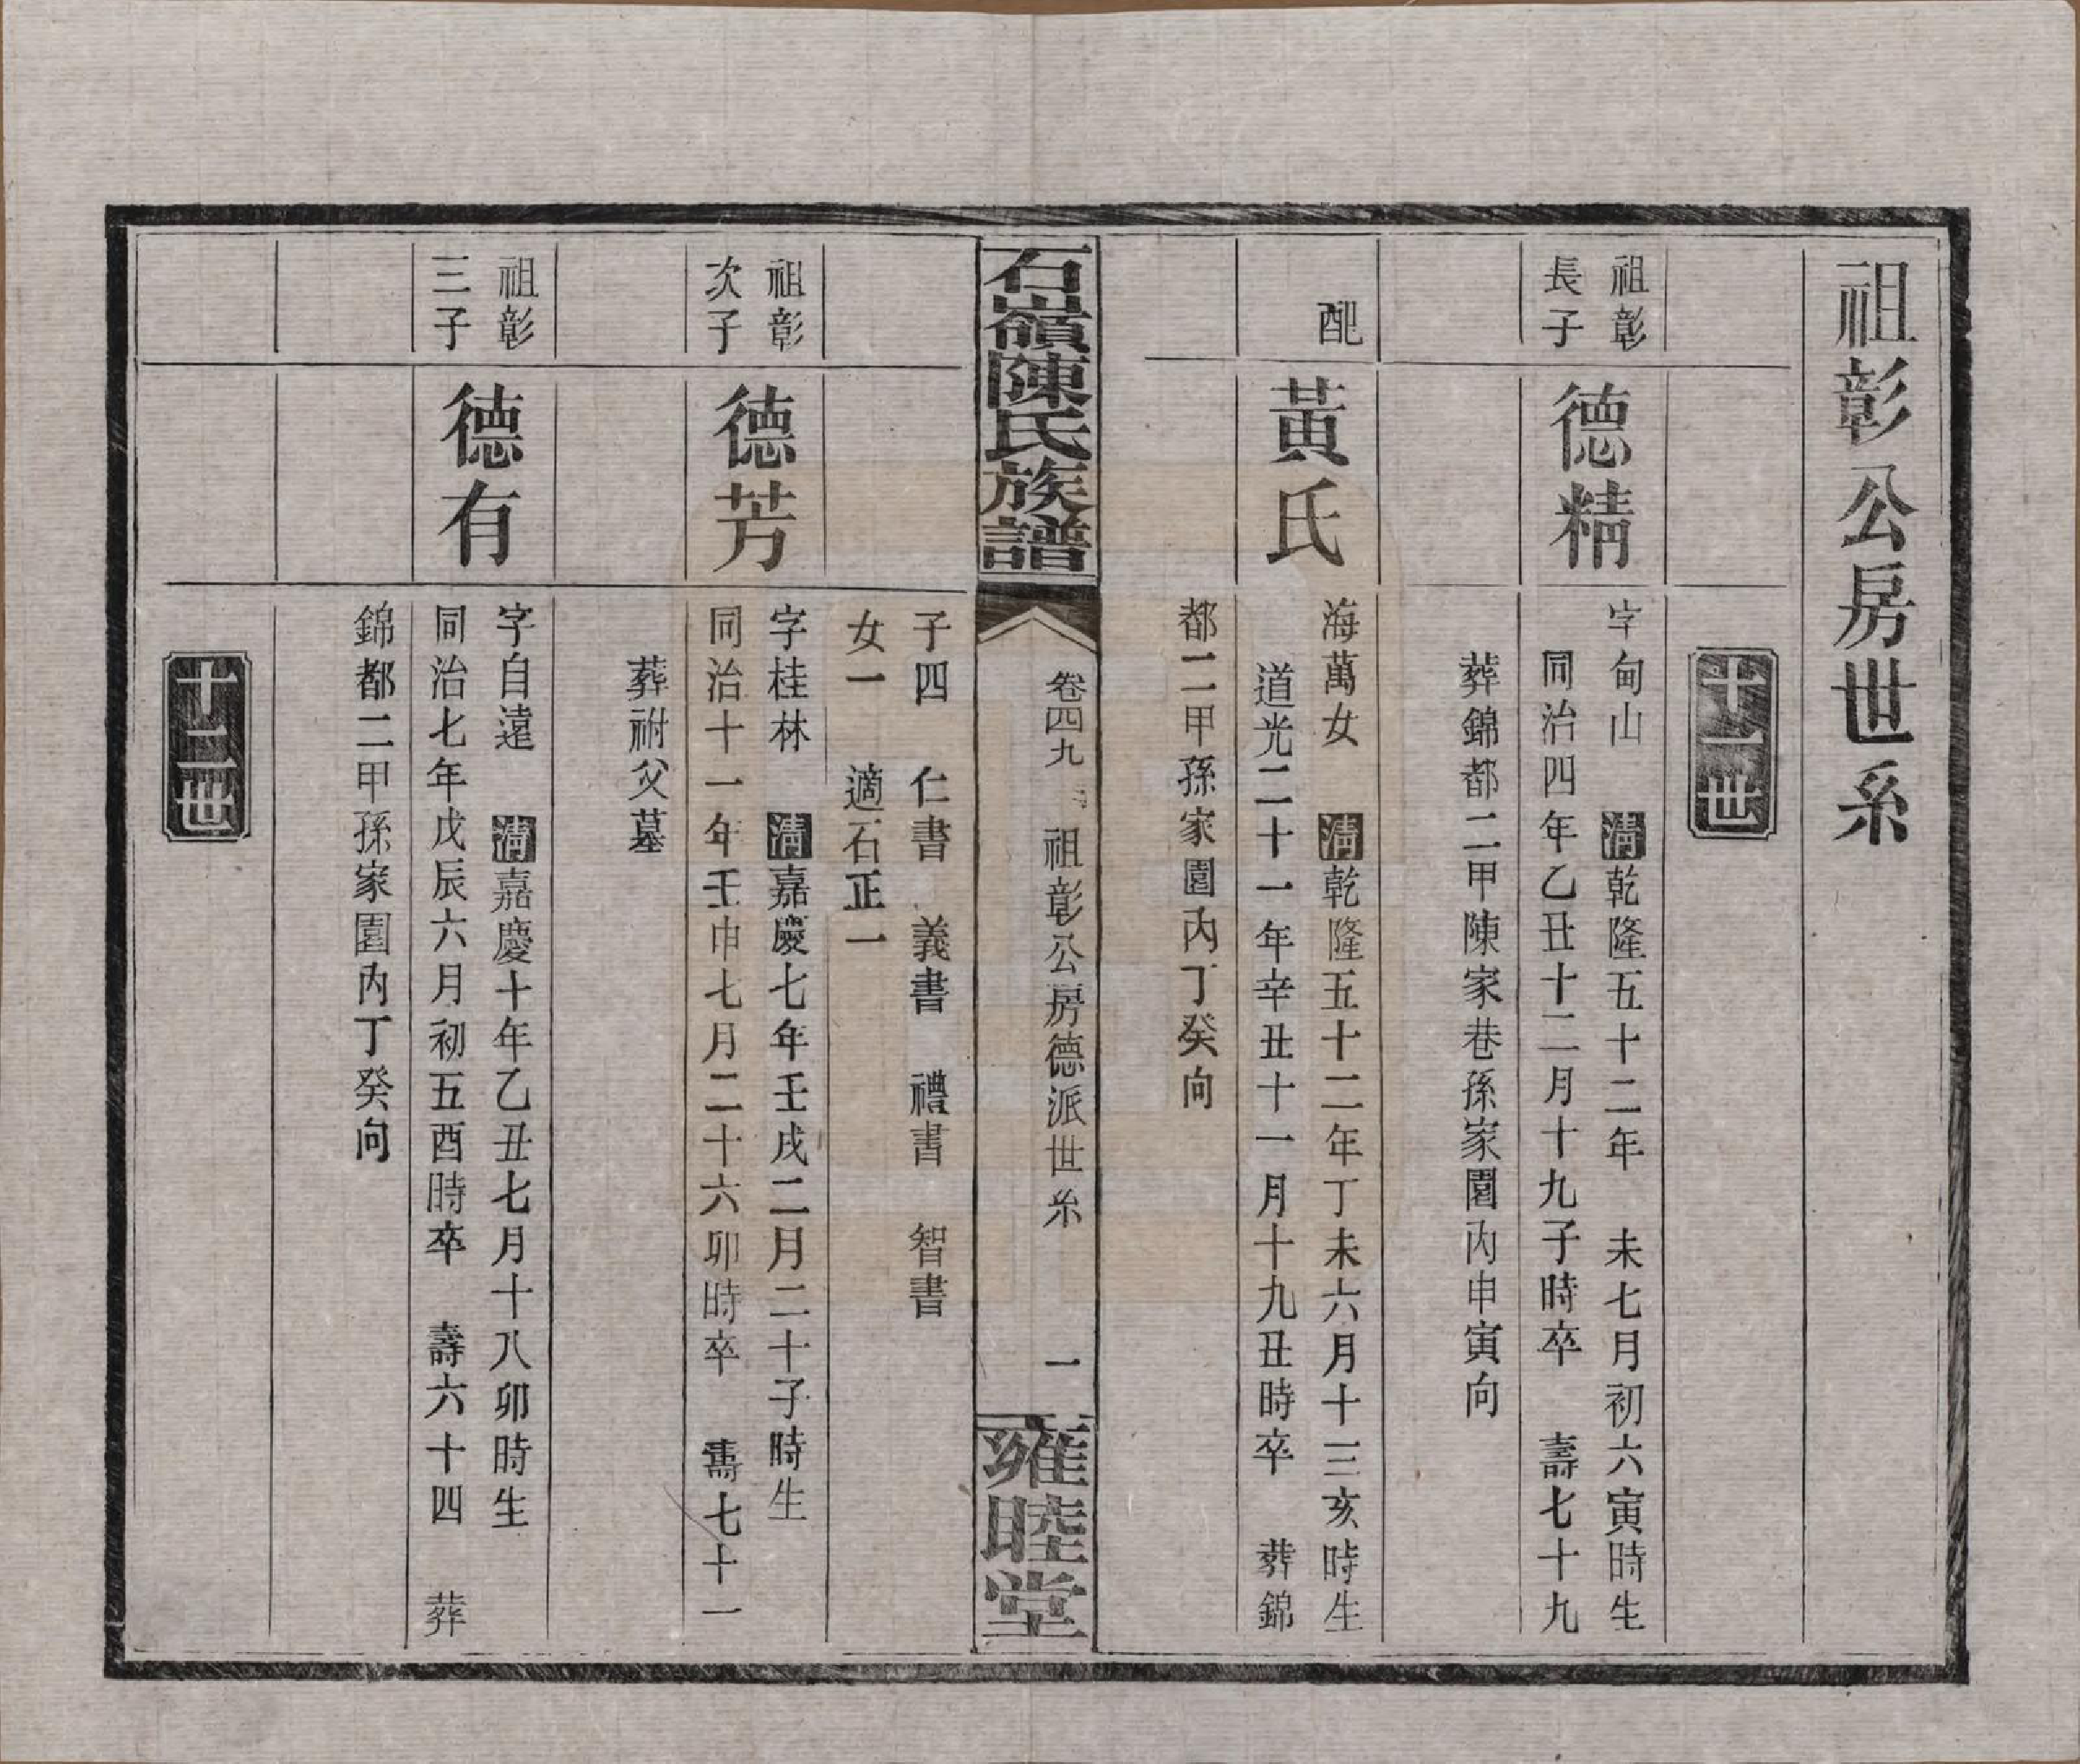 祖彰公房世系
十一世
祖彰
長子
德精
字甸山 清乾隆五十二年 未七月初六寅時生
同治四年乙丑十二月十九子時卒 壽七十九
葬錦都二甲陳家巷孫家園内申寅向
配
黃氏
海萬女 清乾隆五十二年丁未六月十三亥時生
道光二十一年辛丑十一月十九丑時卒 葬錦
都二甲孫家園内丁癸向
石嶺陳氏族譜
卷四九 祖彰公房德派世系 一
雍睦堂
子四 仁書 義書 禮書 智書
女一 適石正一
祖彰
次子
德芳
字桂林 清嘉慶七年壬戌二月二十子時生
同治十一年壬申七月二十六卯時卒 壽七十一
葬祔父墓
祖彰
三子
德有
字自遠 清嘉慶十年乙丑七月十八卯時生
同治七年戊辰六月初五酉時卒 壽六十四 葬
錦都二甲孫家園内丁癸向
十二世